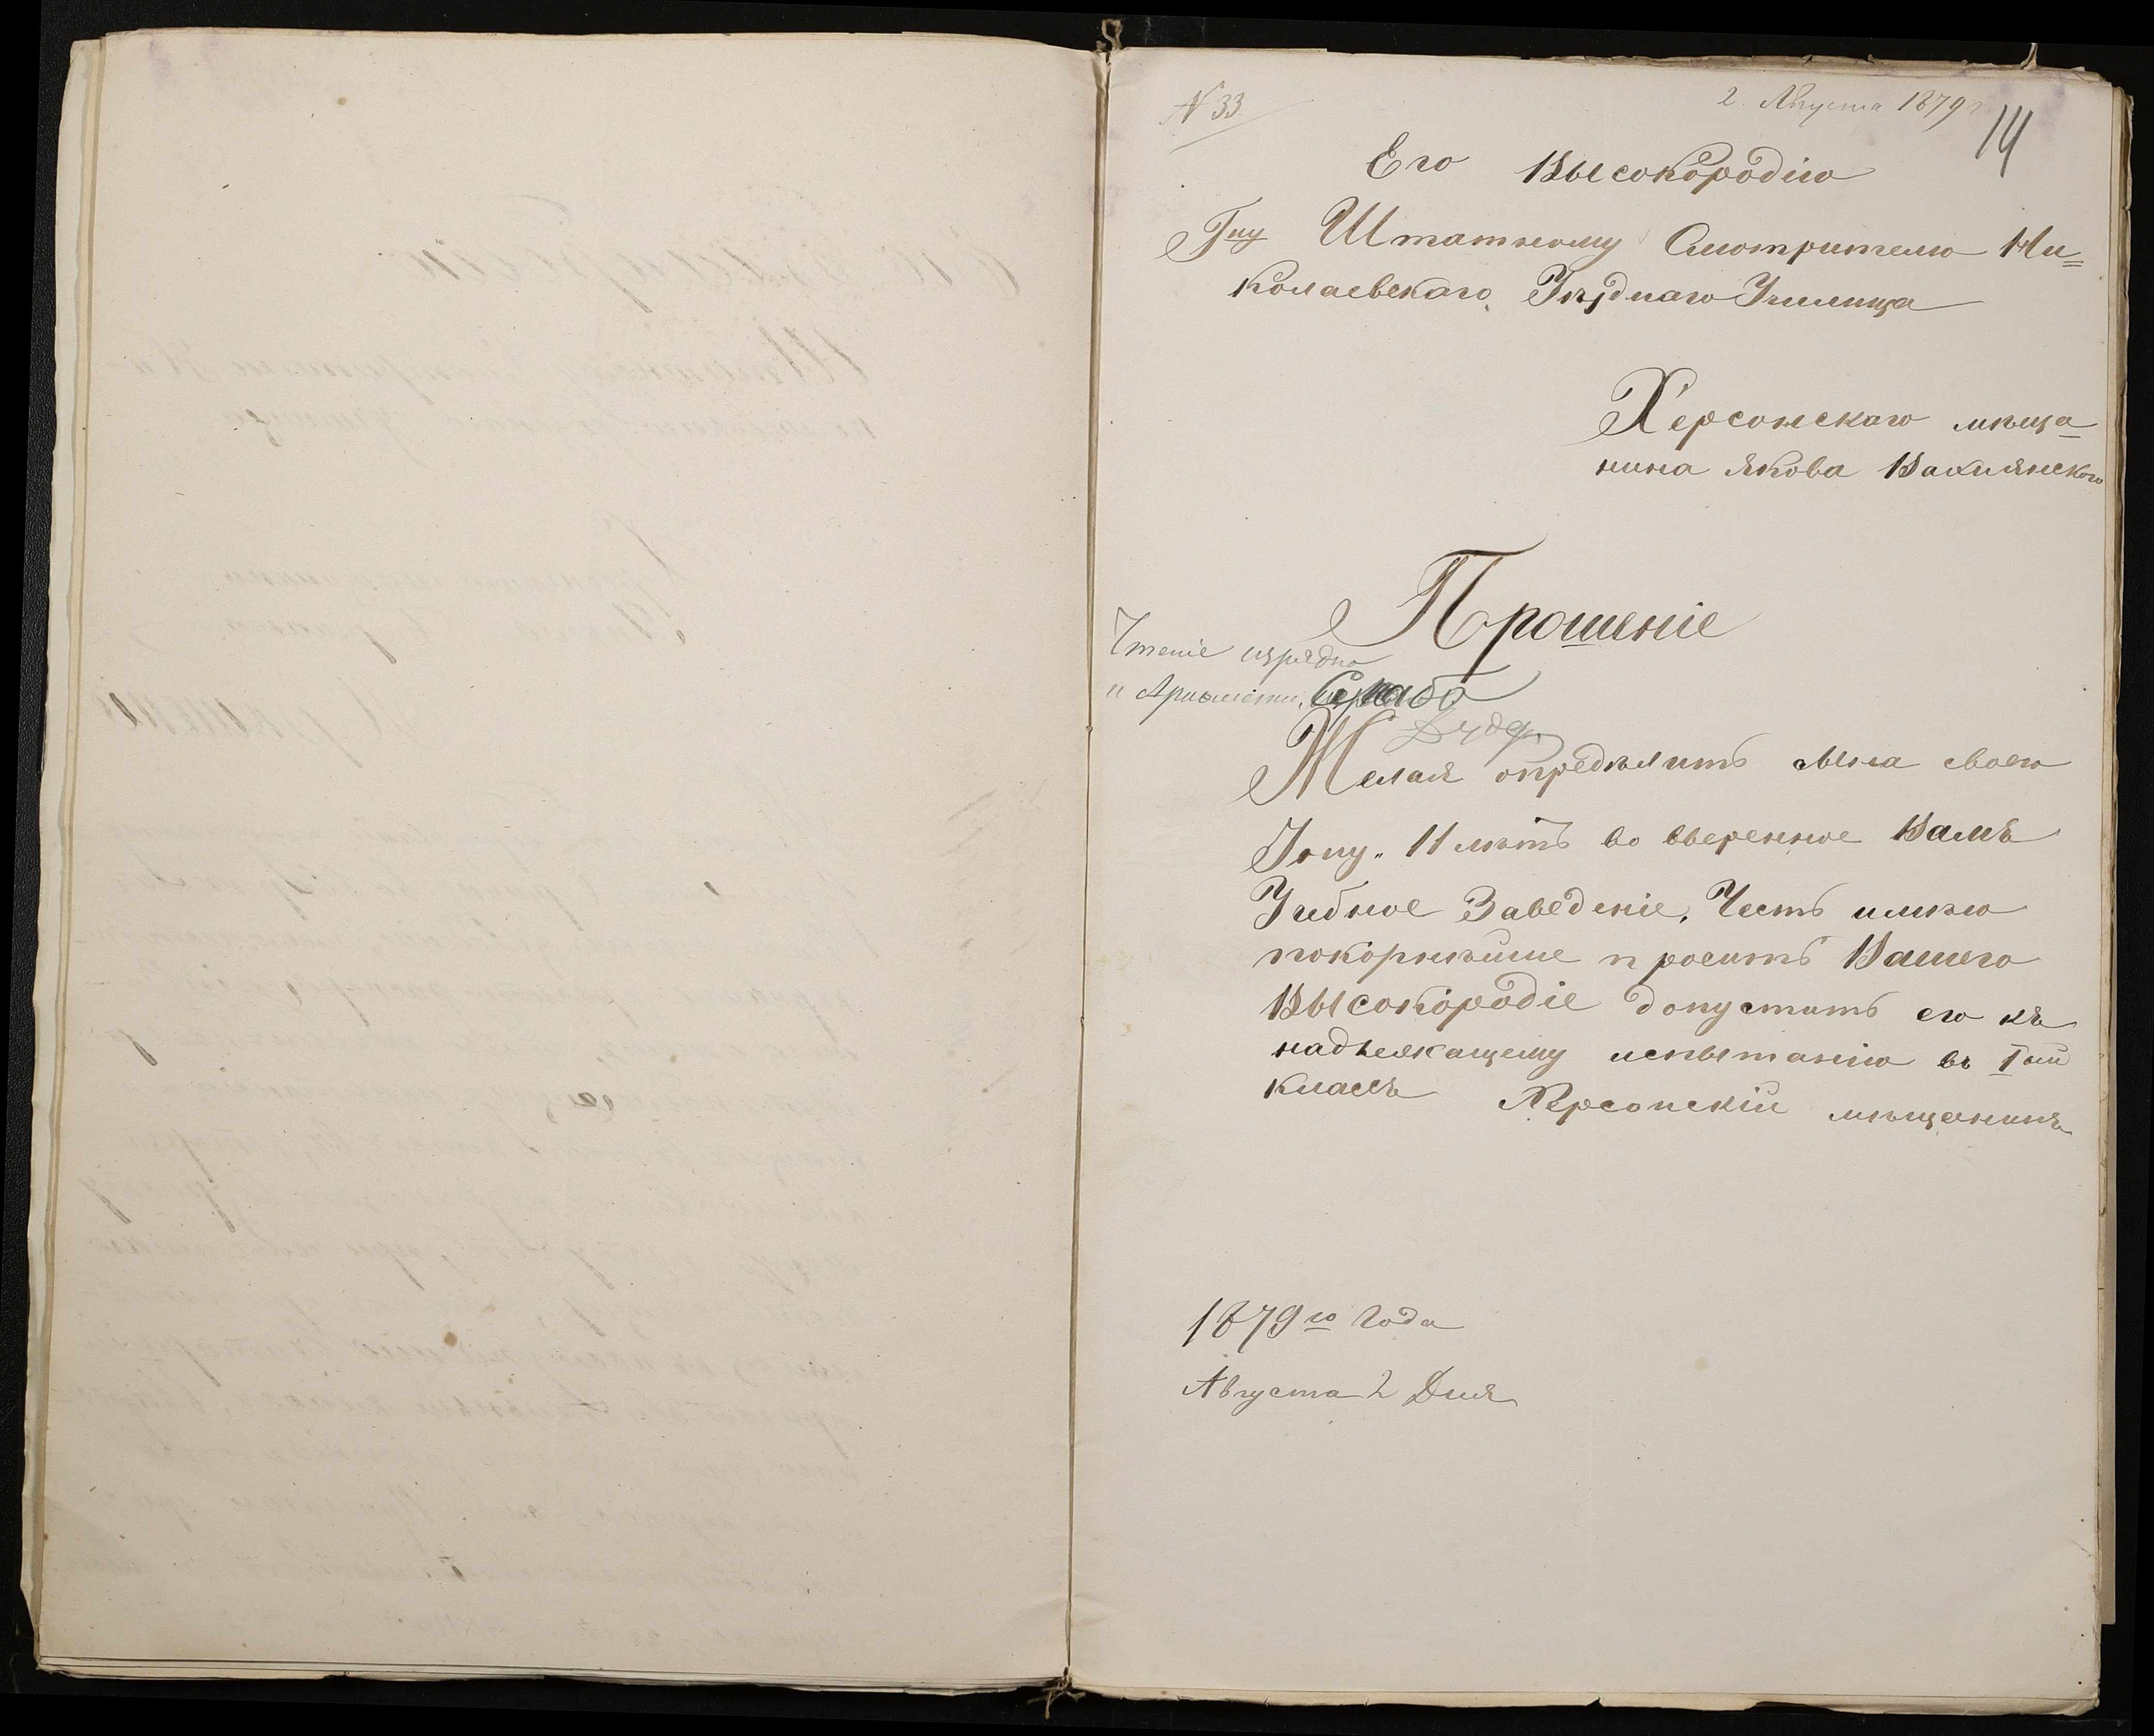 № 33
2. Августа 1879 г.
14
Его Высокородію
Гну Штатному Смотрителю Ни=
колаевскаго Уѣзднаго Училища
Херсонскаго мѣща=
нина Якова
Прошеніе
Чтеніе изрядно
и Ариѳмети. Слабо
Желая опредѣлить сына своего
11 лѣтъ во вверенное Вамъ
Учебное Заведеніе, Честь имѣю
покорнѣйше просить Вашего
Высокородіе допустить его къ
надлежащему испытанію въ Iый
классъ Херсонскій мѣщанинъ
1879го Года
Августа 2 Дня